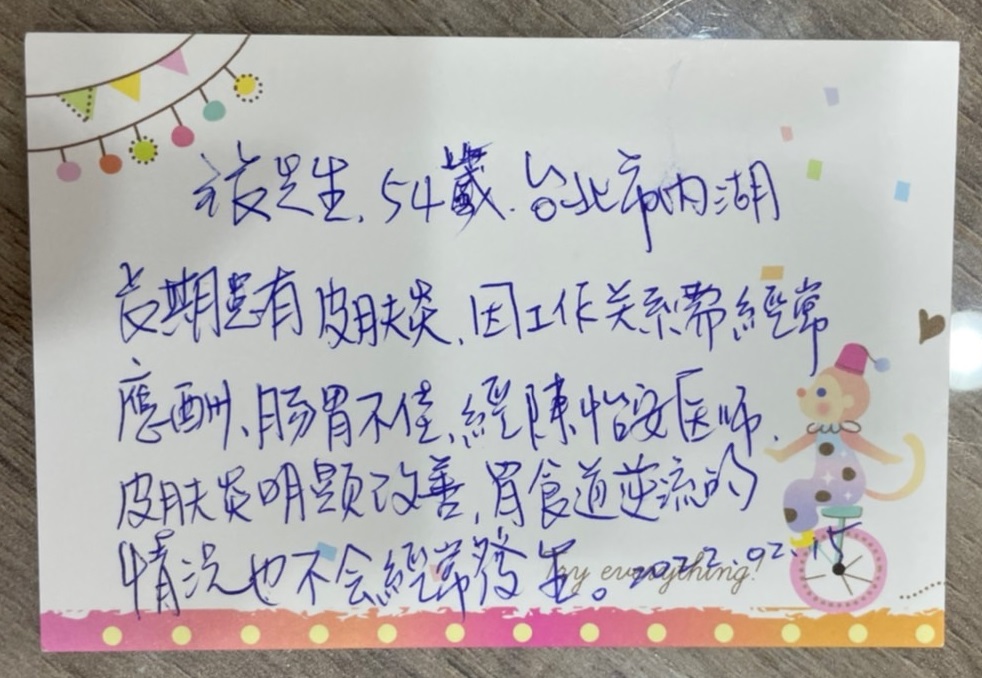 先生, 54歲. 台北市內湖
長期患有皮膚炎, 因工作关系需經常
應酬、肠胃不佳, 經陳怡安医师,
皮膚炎明顯改善, 胃食道逆流的
情況也不会經常發生。
try everything! 2022.02.15